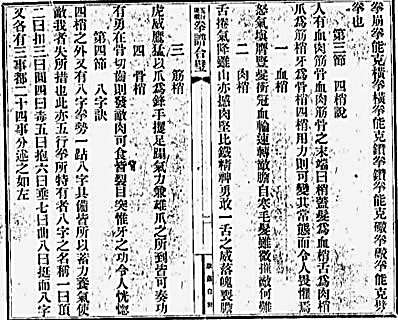 拳崩拳能克橫拳橫拳能克鑽拳鑽拳能克礮拳礮拳能克劈
拳也
第三節　四梢說
人有血肉筋骨血肉筋骨之末端曰梢蓋髮爲血梢舌爲肉梢
爪爲筋梢牙爲骨梢四梢用力則可變其常態而令人畏懼焉
一　血梢
怒氣塡膺豎髮衝冠血輪速轉敵膽自寒毛髮雖微摧敵何難
二　肉梢
舌捲氣降雖山亦撼肉堅比鐵精神勇敢一舌之威落魄喪膽
拳譜合璧
三　筋梢
虎威鷹猛以爪爲鋒手攫足踢氣力兼雄爪之所到皆可奏功
四　骨梢
有勇在骨切齒則發敵肉可食眥裂目突惟牙之功令人恍惚
第四節　八字訣
四梢之外又有八字拳勢一站八字具備皆所以蓄力養氣使
敵我者失所措也此亦五行拳所特有者八字之名稱一曰頂
二曰扣三曰圓四曰毒五曰抱六曰垂七曰曲八曰挺而八字
又各有三事都二十四事分述之如左